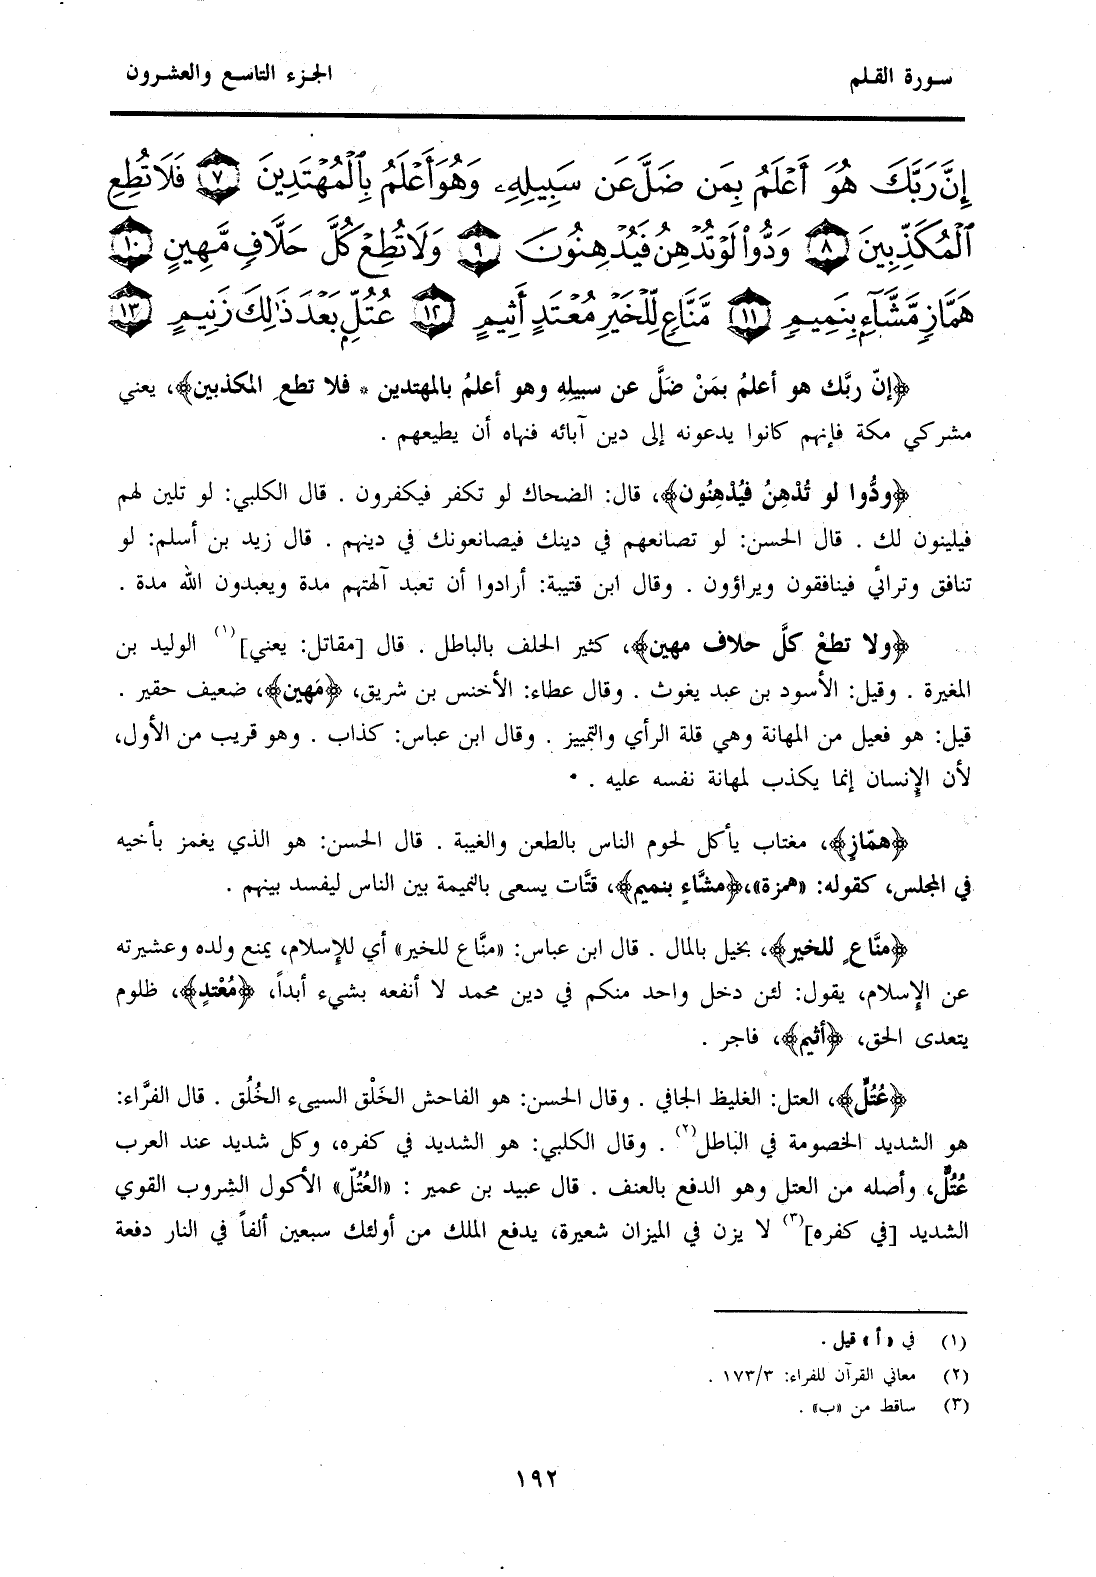 سورة القلم
الجزء التاسع والعشرون
إِنَّ رَبَّكَ هُوَ أَعْلَمُ بِمَن ضَلَّ عَن سَبِيلِهِۦ وَهُوَ أَعْلَمُ بِٱلْمُهْتَدِينَ ٧ فَلَا تُطِعِ
ٱلْمُكَذِّبِينَ ٨ وَدُّوا۟ لَوْ تُدْهِنُ فَيُدْهِنُونَ ٩ وَلَا تُطِعْ كُلَّ حَلَّافٍ مَّهِينٍ ١٠
هَمَّازٍ مَّشَّآءٍۭ بِنَمِيمٍ ١١ مَّنَّاعٍ لِّلْخَيْرِ مُعْتَدٍ أَثِيمٍ ١٢ عُتُلٍّۭ بَعْدَ ذَٰلِكَ زَنِيمٍ ١٣
﴿إنّ ربَّك هو أعلمُ بمَنْ ضَلَّ عن سبيلِهِ وهو أعلمُ بالمهتدين * فلا تطعِ المكذبين﴾، يعني
مشركي مكة فإنهم كانوا يدعونه إلى دين آبائه فنهاه أن يطيعهم .
﴿ودُّوا لو تُدْهِنُ فيُدْهِنُون﴾، قال: الضحاك لو تكفر فيكفرون . قال الكلبي: لو تلين لهم
فيلينون لك . قال الحسن: لو تصانعهم في دينك فيصانعونك في دينهم . قال زيد بن أسلم: لو
تنافق وترائي فينافقون ويراؤون . وقال ابن قتيبة: أرادوا أن تعبد آلهتهم مدة ويعبدون الله مدة .
﴿ولا تطعْ كلَّ حلاف مهين﴾، كثير الحلف بالباطل . قال [مقاتل: يعني](١) الوليد بن
المغيرة . وقيل: الأسود بن عبد يغوث . وقال عطاء: الأخنس بن شريق، ﴿مَهين﴾، ضعيف حقير .
قيل: هو فعيل من المهانة وهي قلة الرأي والتمييز . وقال ابن عباس: كذاب . وهو قريب من الأول،
لأن الإنسان إنما يكذب لمهانة نفسه عليه .
﴿همّازٍ﴾، مغتاب يأكل لحوم الناس بالطعن والغيبة . قال الحسن: هو الذي يغمز بأخيه
في المجلس، كقوله: «همزة»،﴿مشَّاءٍ بنميم﴾، قتَّات يسعى بالنميمة بين الناس ليفسد بينهم .
﴿منَّاعٍ للخير﴾، بخيل بالمال . قال ابن عباس: «منَّاع للخير» أي للإسلام، يمنع ولده وعشيرته
عن الإسلام، يقول: لئن دخل واحد منكم في دين محمد لا أنفعه بشيء أبداً، ﴿مُعْتدٍ﴾، ظلوم
يتعدى الحق، ﴿أثيم﴾، فاجر .
﴿عُتُلٍّ﴾، العتل: الغليظ الجافي . وقال الحسن: هو الفاحش الخَلْق السيىء الخُلُق . قال الفرَّاء:
هو الشديد الخصومة في الباطل(٢) . وقال الكلبي: هو الشديد في كفره، وكل شديد عند العرب
عُتُلٌّ، وأصله من العتل وهو الدفع بالعنف . قال عبيد بن عمير : «العُتُلّ» الأكول الشروب القوي
الشديد [في كفره](٣) لا يزن في الميزان شعيرة، يدفع الملك من أولئك سبعين ألفاً في النار دفعة
(١) في «أ» قيل .
(٢) معاني القرآن للفراء: ١٧٣/٣ .
(٣) ساقط من «ب» .
١٩٢